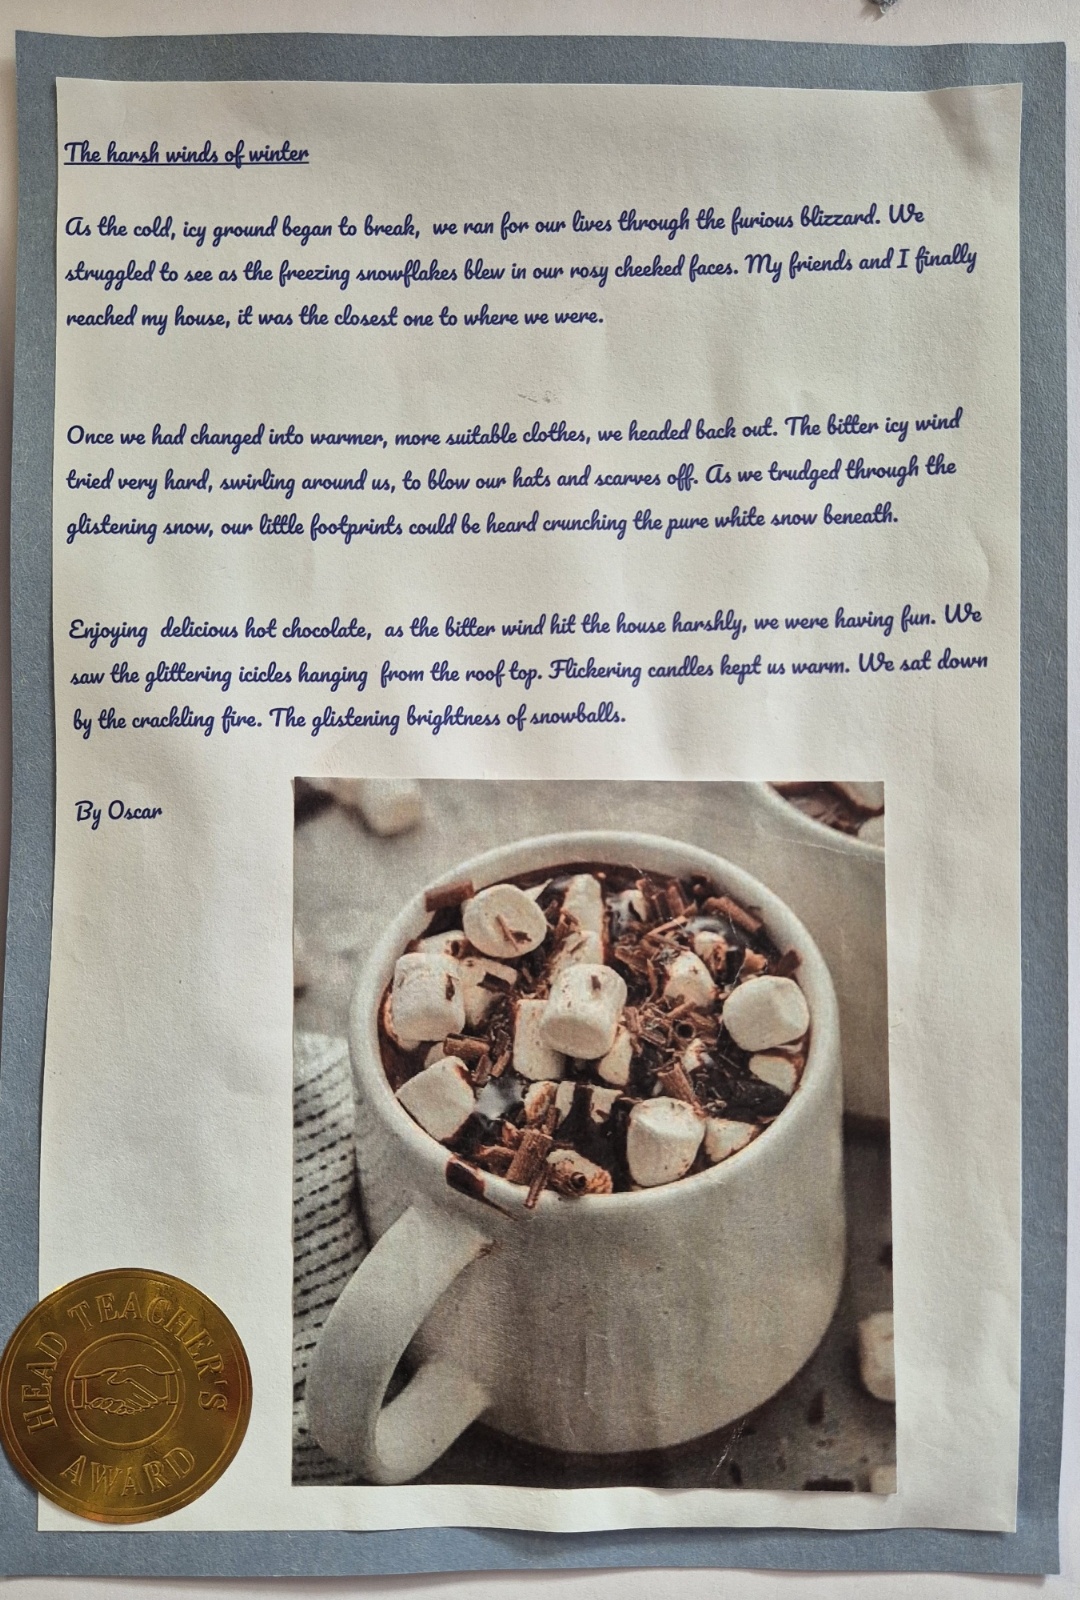 The harsh winds of winter
As the cold, icy ground began to break, we ran for our lives through the furious blizzard. We
struggled to see as the freezing snowflakes blew in our rosy cheeked faces. My friends and I finally
reached my house, it was the closest one to where we were.
Once we had changed into warmer, more suitable clothes, we headed back out. The bitter icy wind
tried very hard, swirling around us, to blow our hats and scarves off. As we trudged through the
glistening snow, our little footprints could be heard crunching the pure white snow beneath.
Enjoying delicious hot chocolate, as the bitter wind hit the house harshly, we were having fun. We
saw the glittering icicles hanging from the roof top. Flickering candles kept us warm. We sat down
by the crackling fire. The glistening brightness of snowballs.
By Oscar
HEAD TEACHER'S
AWARD